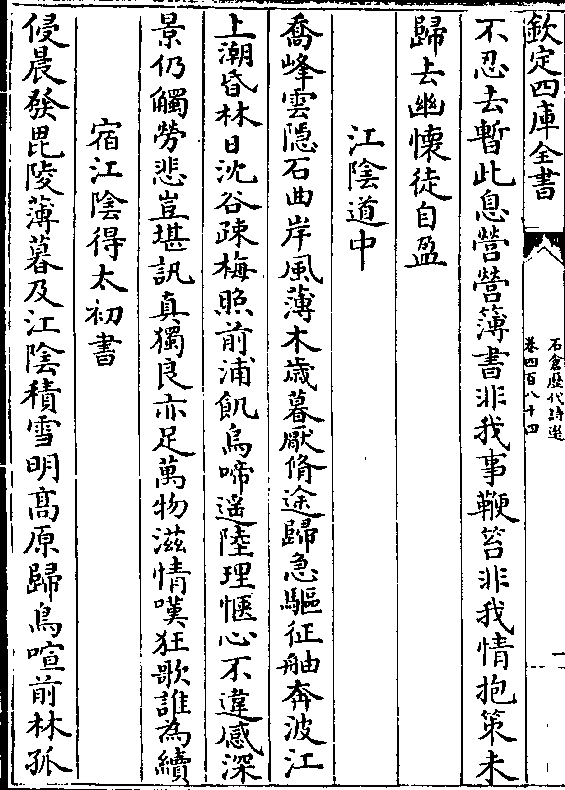 欽定四庫全書
石倉歴代詩選
卷四百八十四
一
不忍去暫此息營營簿書非我事鞭笞非我情抱策未
歸去幽懷徒自盈
江陰道中
喬峰雲隱石曲岸風薄木歳暮厭脩途歸急驅征舳奔波江
上潮昏林日沈谷疎梅照前浦飢烏啼遥陸理愜心不違感深
景仍觸勞悲豈堪訊真獨良亦足萬物滋情嘆狂歌誰為續
宿江陰得太初書
侵晨發毘陵薄暮及江陰積雪明髙原歸鳥喧前林孤